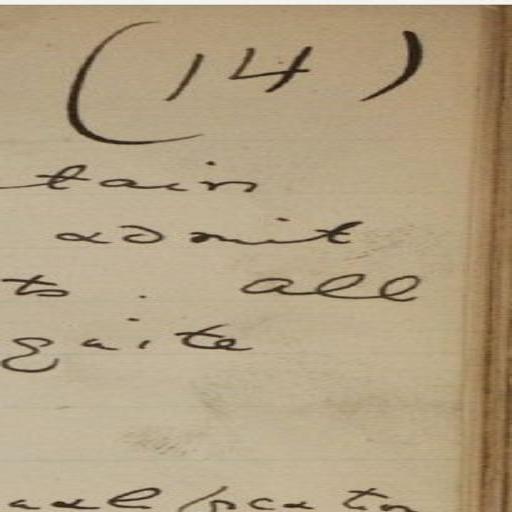 (14)
tain
admit
to all
quite